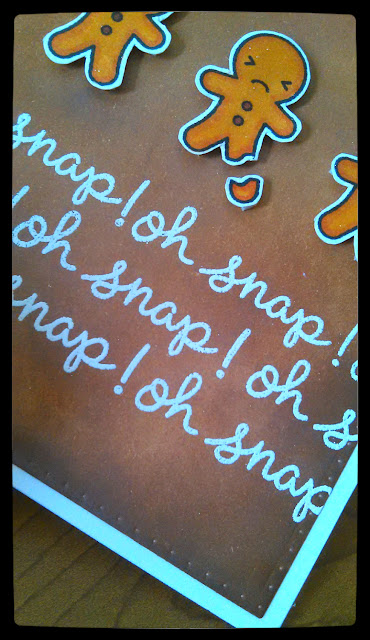 snap! oh snap!
! oh snap! oh s
snap! oh snap